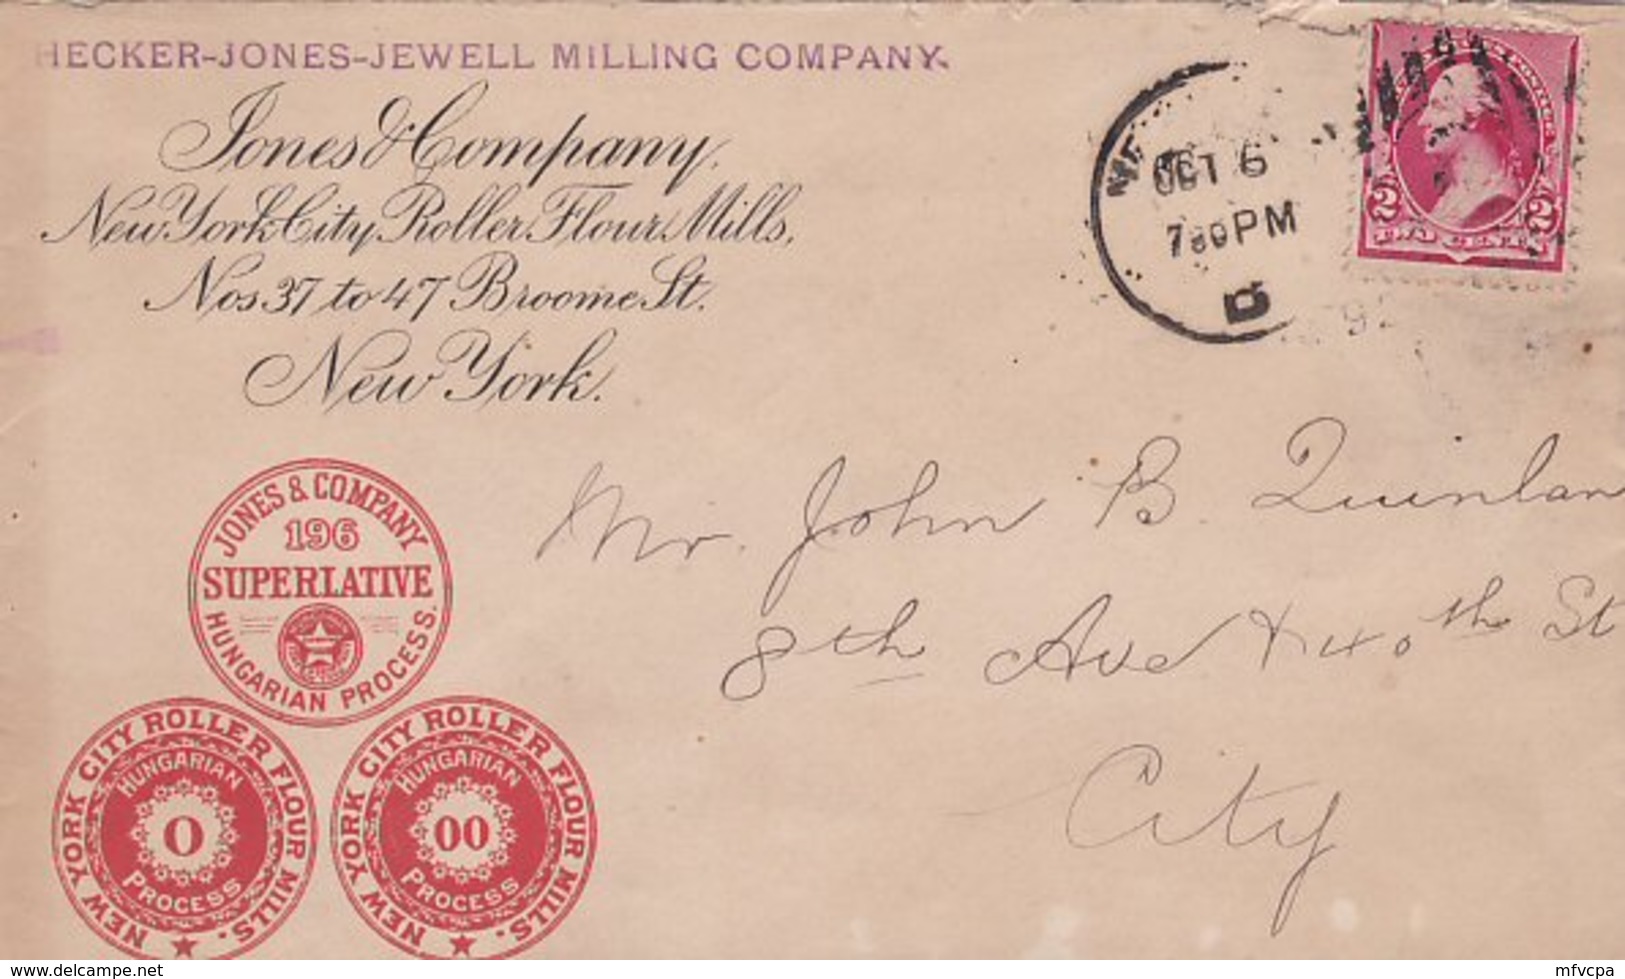 HECKER-JONES-JEWELL MILLING COMPANY.
Jones & Company,
New York City Roller Flour Mills,
Nos 37 to 47 Broome St.
New York.
OCT 6
730PM
D
92
2 2
TWO CENTS
JONES & COMPANY
196
SUPERLATIVE
HUNGARIAN PROCESS.
NEW YORK CITY ROLLER FLOUR MILLS.
HUNGARIAN
0
PROCESS
NEW YORK CITY ROLLER FLOUR MILLS.
HUNGARIAN
00
PROCESS
Mr. John B. Quinlan
8th Ave & 40th St
City
www.delcampe.net
mfvcpa